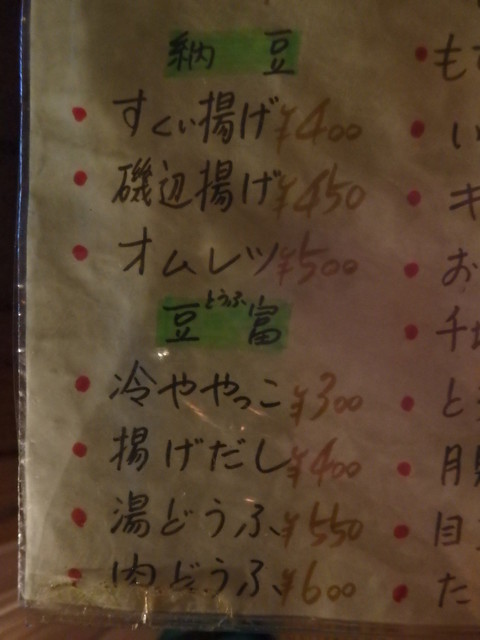 納豆
・すくい揚げ ¥400
・磯辺揚げ ¥450
・オムレツ ¥500
とうふ
豆富
・冷ややっこ ¥300
・揚げだし ¥400
・湯どうふ ¥550
・肉どうふ ¥600
・も
・い
・キ
・お
・千
・と
・月
・目
・た